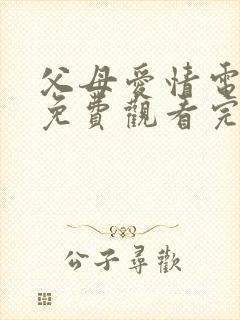 父母愛情電
免費觀看完
公子尋歡